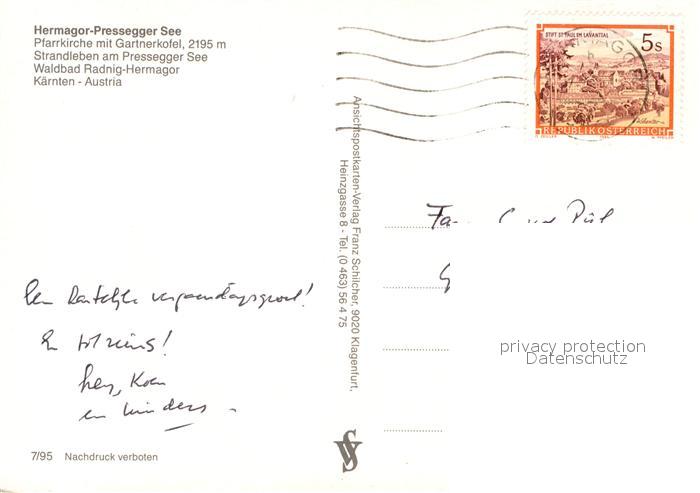 Hermagor-Pressegger See
Pfarrkirche mit Gartnerkofel, 2195 m
Strandleben am Pressegger See
Waldbad Radnig-Hermagor
Kärnten - Austria
STIFT ST. PAUL IM LAVANTTAL
5s
REPUBLIK ÖSTERREICH
Ansichtspostkarten-Verlag Franz Schilcher, 9020 Klagenfurt,
Heinzgasse 8 - Tel. (0 463) 56 4 75
Fa
Een hartelijke verjaardagsgroet!
En tot ziens!
Koen
en kinders
privacy protection
Datenschutz
7/95 Nachdruck verboten